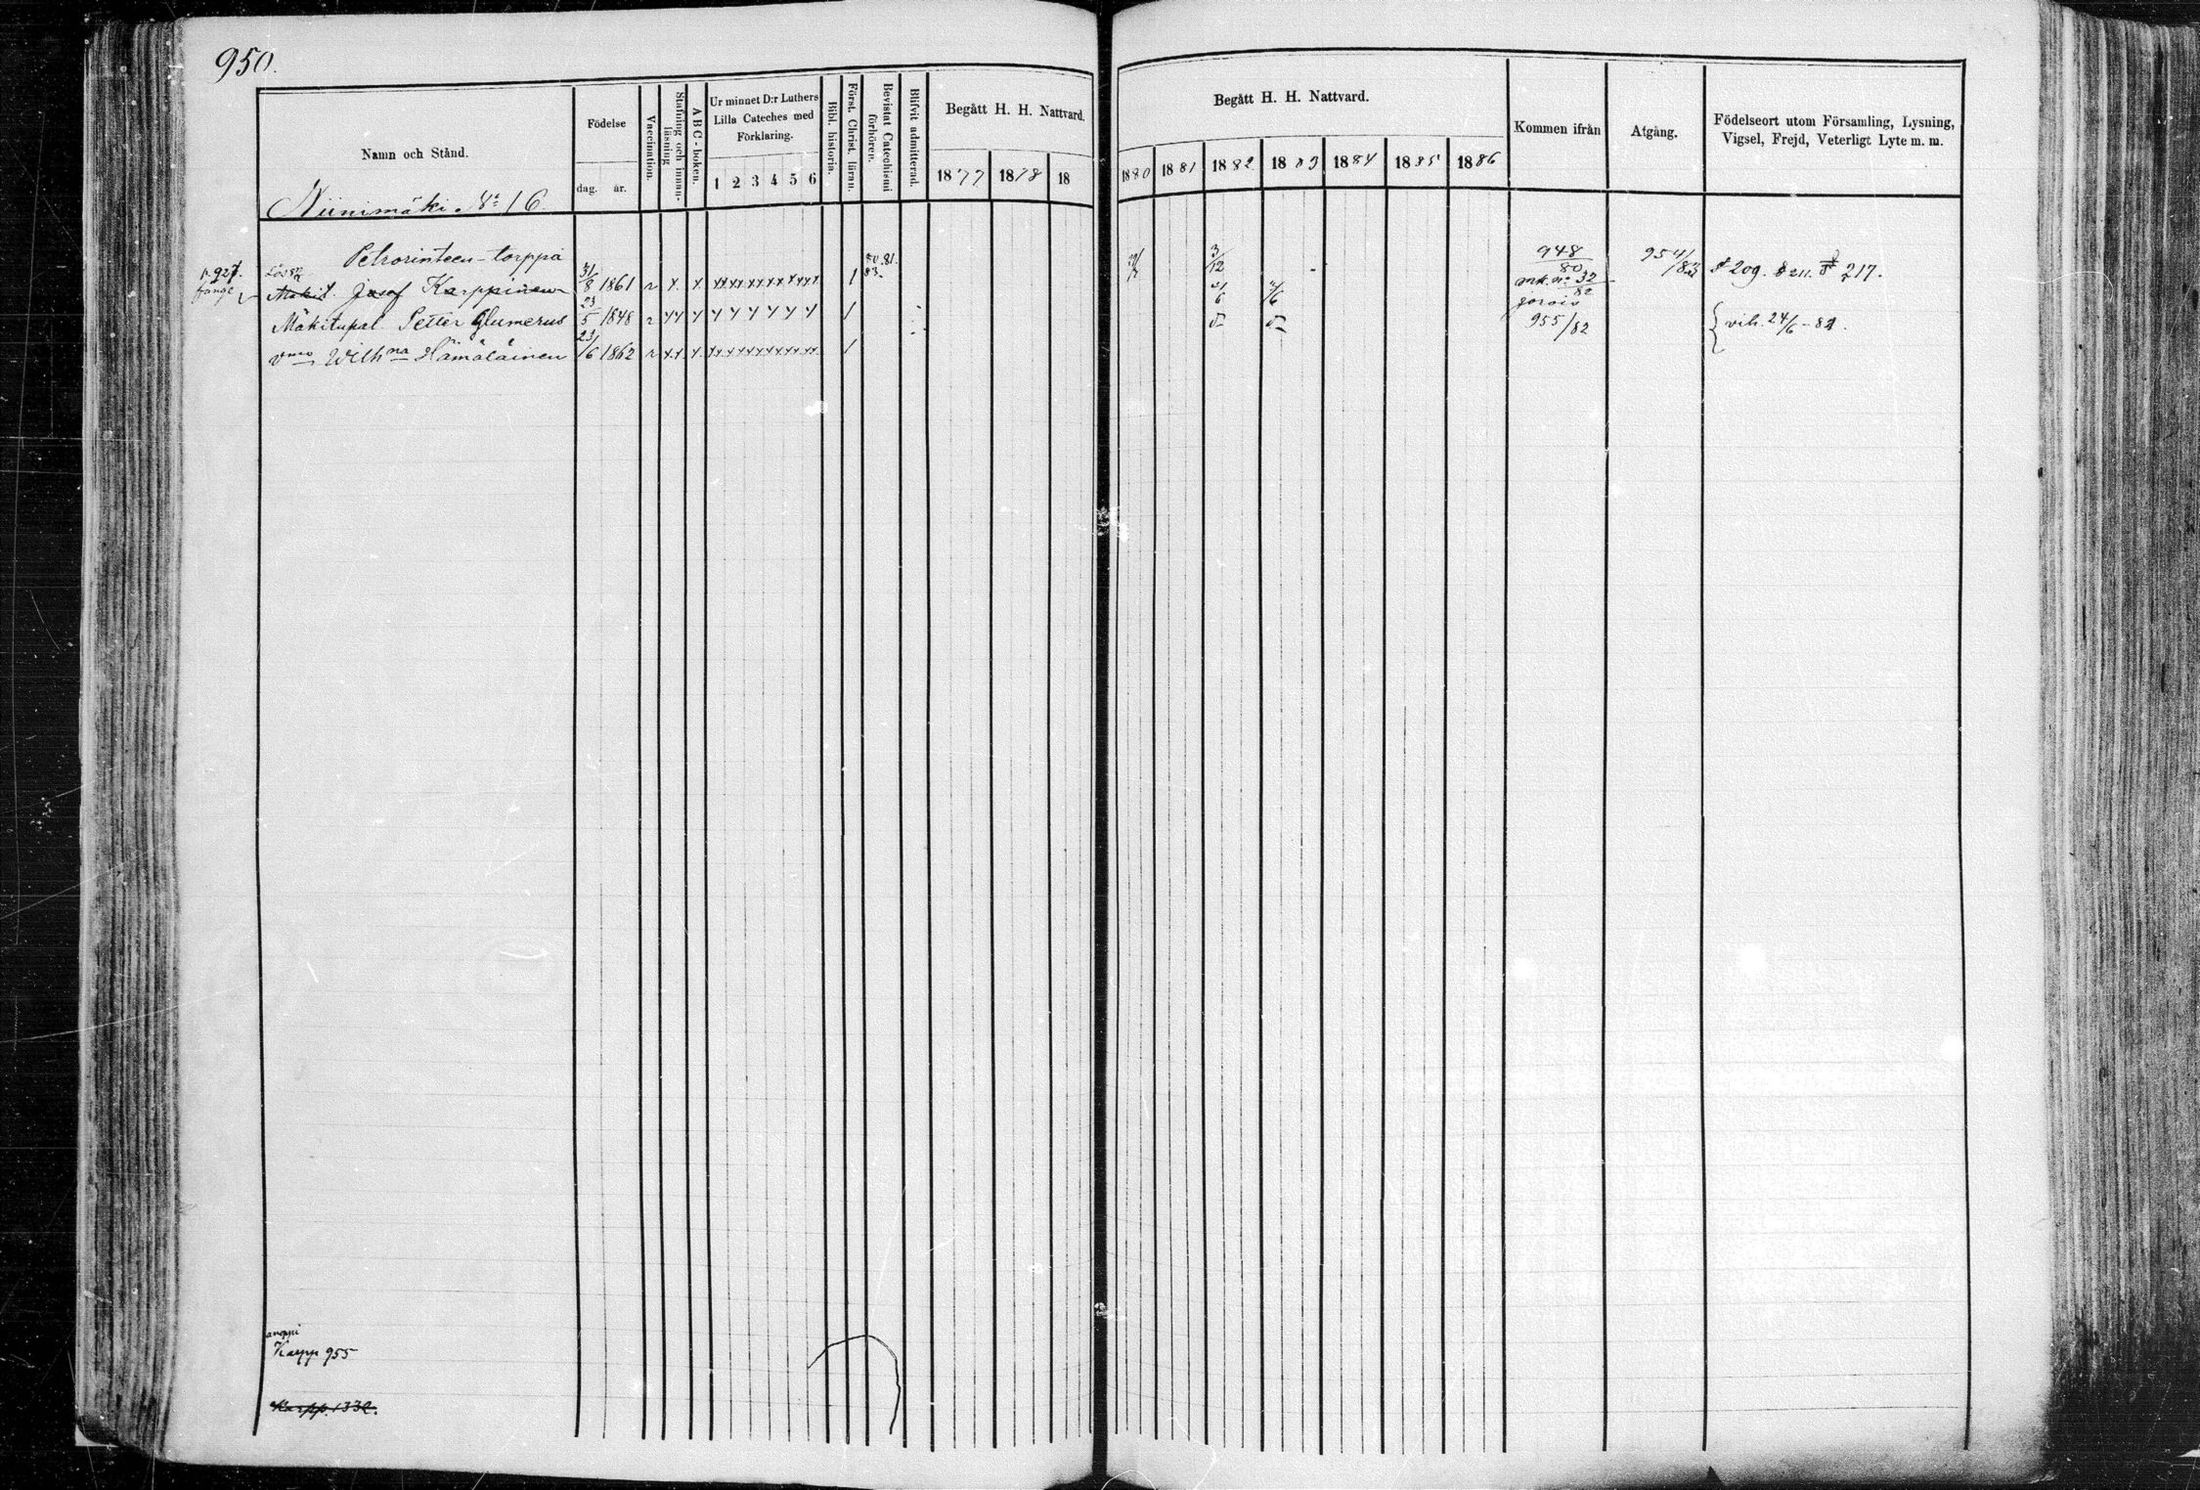 950.
Namn och Stånd.
Födelse
dag. år.
Vaccination.
Stafning och innanläsning
A B C - boken.
Ur minnet D:r Luthers Lilla Cateches med Förklaring.
1 2 3 4 5 6
Bibl. historia.
Först. Christ. läran.
Bevistat Catechismi förhören.
Blifvit admitterad.
Begått H. H. Nattvard.
1877 1878 18
Begått H. H. Nattvard.
1880 1881 1882 1883 1884 1885 1886
Kommen ifrån
Afgång.
Födelseort utom Församling, Lysning, Vigsel, Frejd, Veterligt Lyte m. m.
Niinimäki No 16.
Petrorinteen-torppa
p. 927.
Lösen
Mäkit. Josef Karppinen 31/8 1861 1 80.81. 83. 3/12 948/80 954/83 209. 211. 217.
Mäkitupal. Petter Glumerus 23/5 1848 1 mk. No 32/82 jorois
vmo Wilhna Hämäläinen 23/6 1862 1 955/82 { vih. 24/6 - 82.
anoppi
Karpp 955
Karpp. 1332.